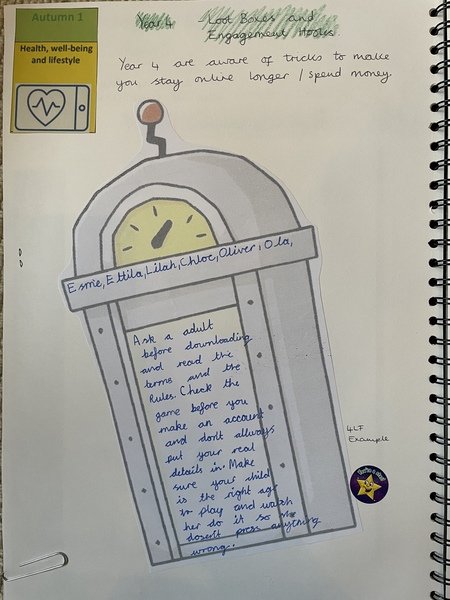 Autumn 1
Health, well-being
and lifestyle
Year 4 Loot Boxes and
Engagement Hooks
Year 4 are aware of tricks to make
you stay online longer / spend money.
Esme, Ettila, Lilah, Chloe, Oliver, Ola,
Ask a adult
before downloading
and read the
terms and the
Rules. Check the
game before you
make an account
and don't allways
put your real
details in. Make
sure your child
is the right age
to play and watch
her do it so
doesn't press anything
wrong.
4LF
Example